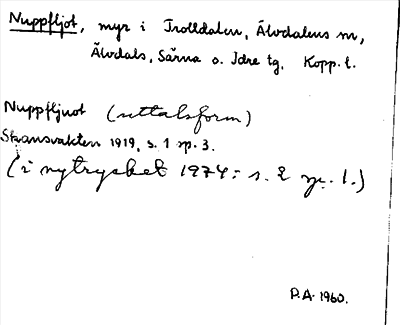 Nuppfljot, myr i Trolldalen, Älvdalens sn,
Älvdals, Särna o. Idre tg, Kopp. l.
Nuppfljuot (uttalsform)
Skansvakten 1919, s. 1 sp. 3.
(i nytrycket 1974: s. 2 sp. 1.)
P.A. 1960.